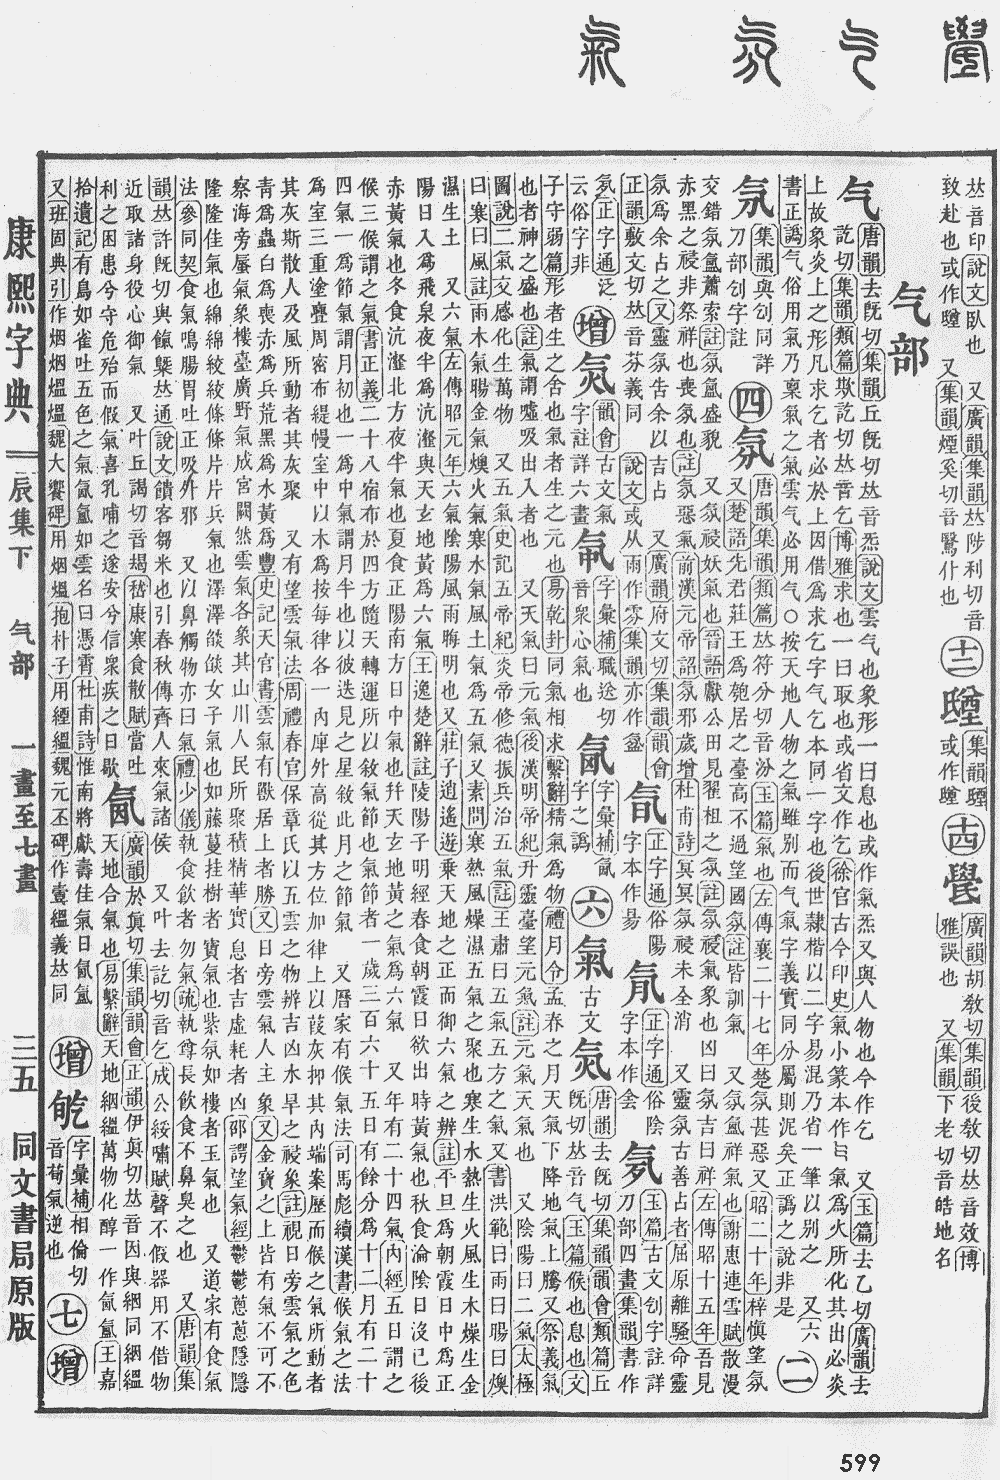 𠀤音印說文臥也　又廣韻集韻𠀤陟利切音
致赴也或作　又集韻煙奚切音鷖什也
十二
集韻
或作
十四
廣韻胡敎切集韻後敎切𠀤音效博
雅誤也　又集韻下老切音皓地名
气部
气唐韻去旣切集韻丘旣切𠀤音炁說文雲气也象形一曰息也或作氣炁又與人物也今作乞　又玉篇去乙切廣韻去
訖切集韻類篇欺訖切𠀤音乞博雅求也一曰取也或省文作乞徐官古今印史氣小篆本作气氣為火所化其出必炎
上故象炎上之形凡求乞者必於上因借為求乞字气乞本同一字也後世隸楷以二字易混乃省一筆以别之　又六
書正譌气俗用氣乃稟氣之氣雲气必用气○按天地人物之氣雖别而气氣字義實同分屬則泥矣正譌之說非是
二
氖刀部刉字註
集韻與刉同詳
四
氛唐韻集韻類篇𠀤符分切音汾玉篇氣也左傳襄二十七年楚氛甚惡又昭二十年梓愼望氛
又楚語先君莊王為匏居之臺高不過望國氛註皆訓氣　又氛氲祥氣也謝惠連雪賦散漫
交錯氛氲蕭索註氛氲盛貌　又氛祲妖氣也晉語獻公田見翟柤之氛註氛祲氣象也凶曰氛吉曰祥左傳昭十五年吾見
赤黑之祲非祭祥也喪氛也註氛惡氣前漢元帝詔氛邪歲增杜甫詩冥冥氛祲未全消　又靈氛古善占者屈原離騷命靈
氛爲余占之又靈氛吿余以吉占　又廣韻府文切集韻韻會
正韻敷文切𠀤音芬義同　說文或从雨作雰集韻亦作氳
氜正字通俗陽
字本作昜
氞正字通俗陰
字本作侌
玉篇古文刉字註詳
刀部四畫集韻書作
正字通泛
云俗字非
增
氣韻會古文氣
字註詳六畫
字彙補職迄切
音衆心氣也
字彙補氤
字之譌
六
氣古文𣱛唐韻去旣切集韻韻會類篇丘
旣切𠀤音气玉篇候也息也文
子守弱篇形者生之舍也氣者生之元也易乾卦同氣相求繫辭精氣為物禮月令孟春之月天氣下降地氣上騰又祭義氣
也者神之盛也註氣謂噓吸出入者也　又天氣曰元氣後漢明帝紀升靈臺望元氣註元氣天氣也　又隂陽曰二氣太極
圖說二氣交感化生萬物　又五氣史記五帝紀炎帝修德振兵治五氣註王肅曰五氣五方之氣又書洪範曰雨曰暘曰燠
曰寒曰風註雨木氣暘金氣燠火氣寒水氣風土氣爲五氣又素問寒熱風燥濕五氣之聚也寒生水熱生火風生木燥生金
濕生土　又六氣左傳昭元年六氣隂陽風雨晦明也又莊子逍遙遊乗天地之正而御六氣之辨註平旦爲朝霞日中爲正
陽日入爲飛泉夜半爲沆瀣與天玄地黄爲六氣王逸楚辭註陵陽子明經春食朝霞日欲出時黄氣也秋食淪隂日沒已後
赤黄氣也冬食沆瀣北方夜半氣也夏食正陽南方日中氣也幷天玄地黄之氣爲六氣　又年有二十四氣内經五日謂之
候三候謂之氣書正義二十八宿布於四方隨天轉運所以敘氣節也氣節者一歲三百六十五日有餘分爲十二月有二十
四氣一爲節氣謂月初也一爲中氣謂月半也以彼迭見之星敘此月之節氣　又曆家有候氣法司馬彪續漢書候氣之法
爲室三重塗舋周密布緹幔室中以木爲按每律各一内庳外高從其方位加律上以葭灰抑其内端案歷而候之氣所動者
其灰斯散人及風所動者其灰聚　又有望雲氣法周禮春官保章氏以五雲之物辨吉凶水旱之祲象註視日旁雲氣之色
靑爲蟲白爲喪赤爲兵荒黑爲水黄爲豐史記天官書雲氣有獸居上者勝又日旁雲氣人主象又金寶之上皆有氣不可不
察海旁蜃氣象樓臺廣野氣成宫闕然雲氣各象其山川人民所聚積精華實息者吉虛耗者凶邵諤望氣經鬱鬱葱葱隱隱
隆隆佳氣也綿綿絞絞條條片片兵氣也澤澤燄燄女子氣也如藤蔓挂樹者寶氣也紫氛如樓者玉氣也　又道家有食氣
法參同契食氣鳴腸胃吐正吸外邪　又以鼻觸物亦曰氣禮少儀執食飮者勿氣疏執尊長飮食不鼻臭之也　又唐韻集
韻𠀤許旣切與餼槩𠀤通說文饋客芻米也引春秋傳齊人來氣諸侯　又叶去訖切音乞成公綏嘯賦聲不假器用不借物
近取諸身役心御氣　又叶丘謁切音朅嵇康寒食散賦當吐
利之困患今守危殆而假氣喜孔哺之遂安兮信衆疾之日歇
氤廣韻於眞切集韻韻會正韻伊眞切𠀤音因與絪同絪縕
天地合氣也易繫辭天地絪縕萬物化醇一作氤氲王嘉
拾遺記有鳥如雀吐五色之氣氤氲如雲名曰憑霄杜甫詩惟南將獻壽佳氣日氤氲
又班固典引作烟烟熅熅魏大饗碑用烟熅抱朴子用緸縕魏元丕碑作壹緼義𠀤同
增
字彙補相倫切
音荀氣逆也
七
增
康熙字典
辰集下
气部
一畫至七畫
三五
同文書局原版
599